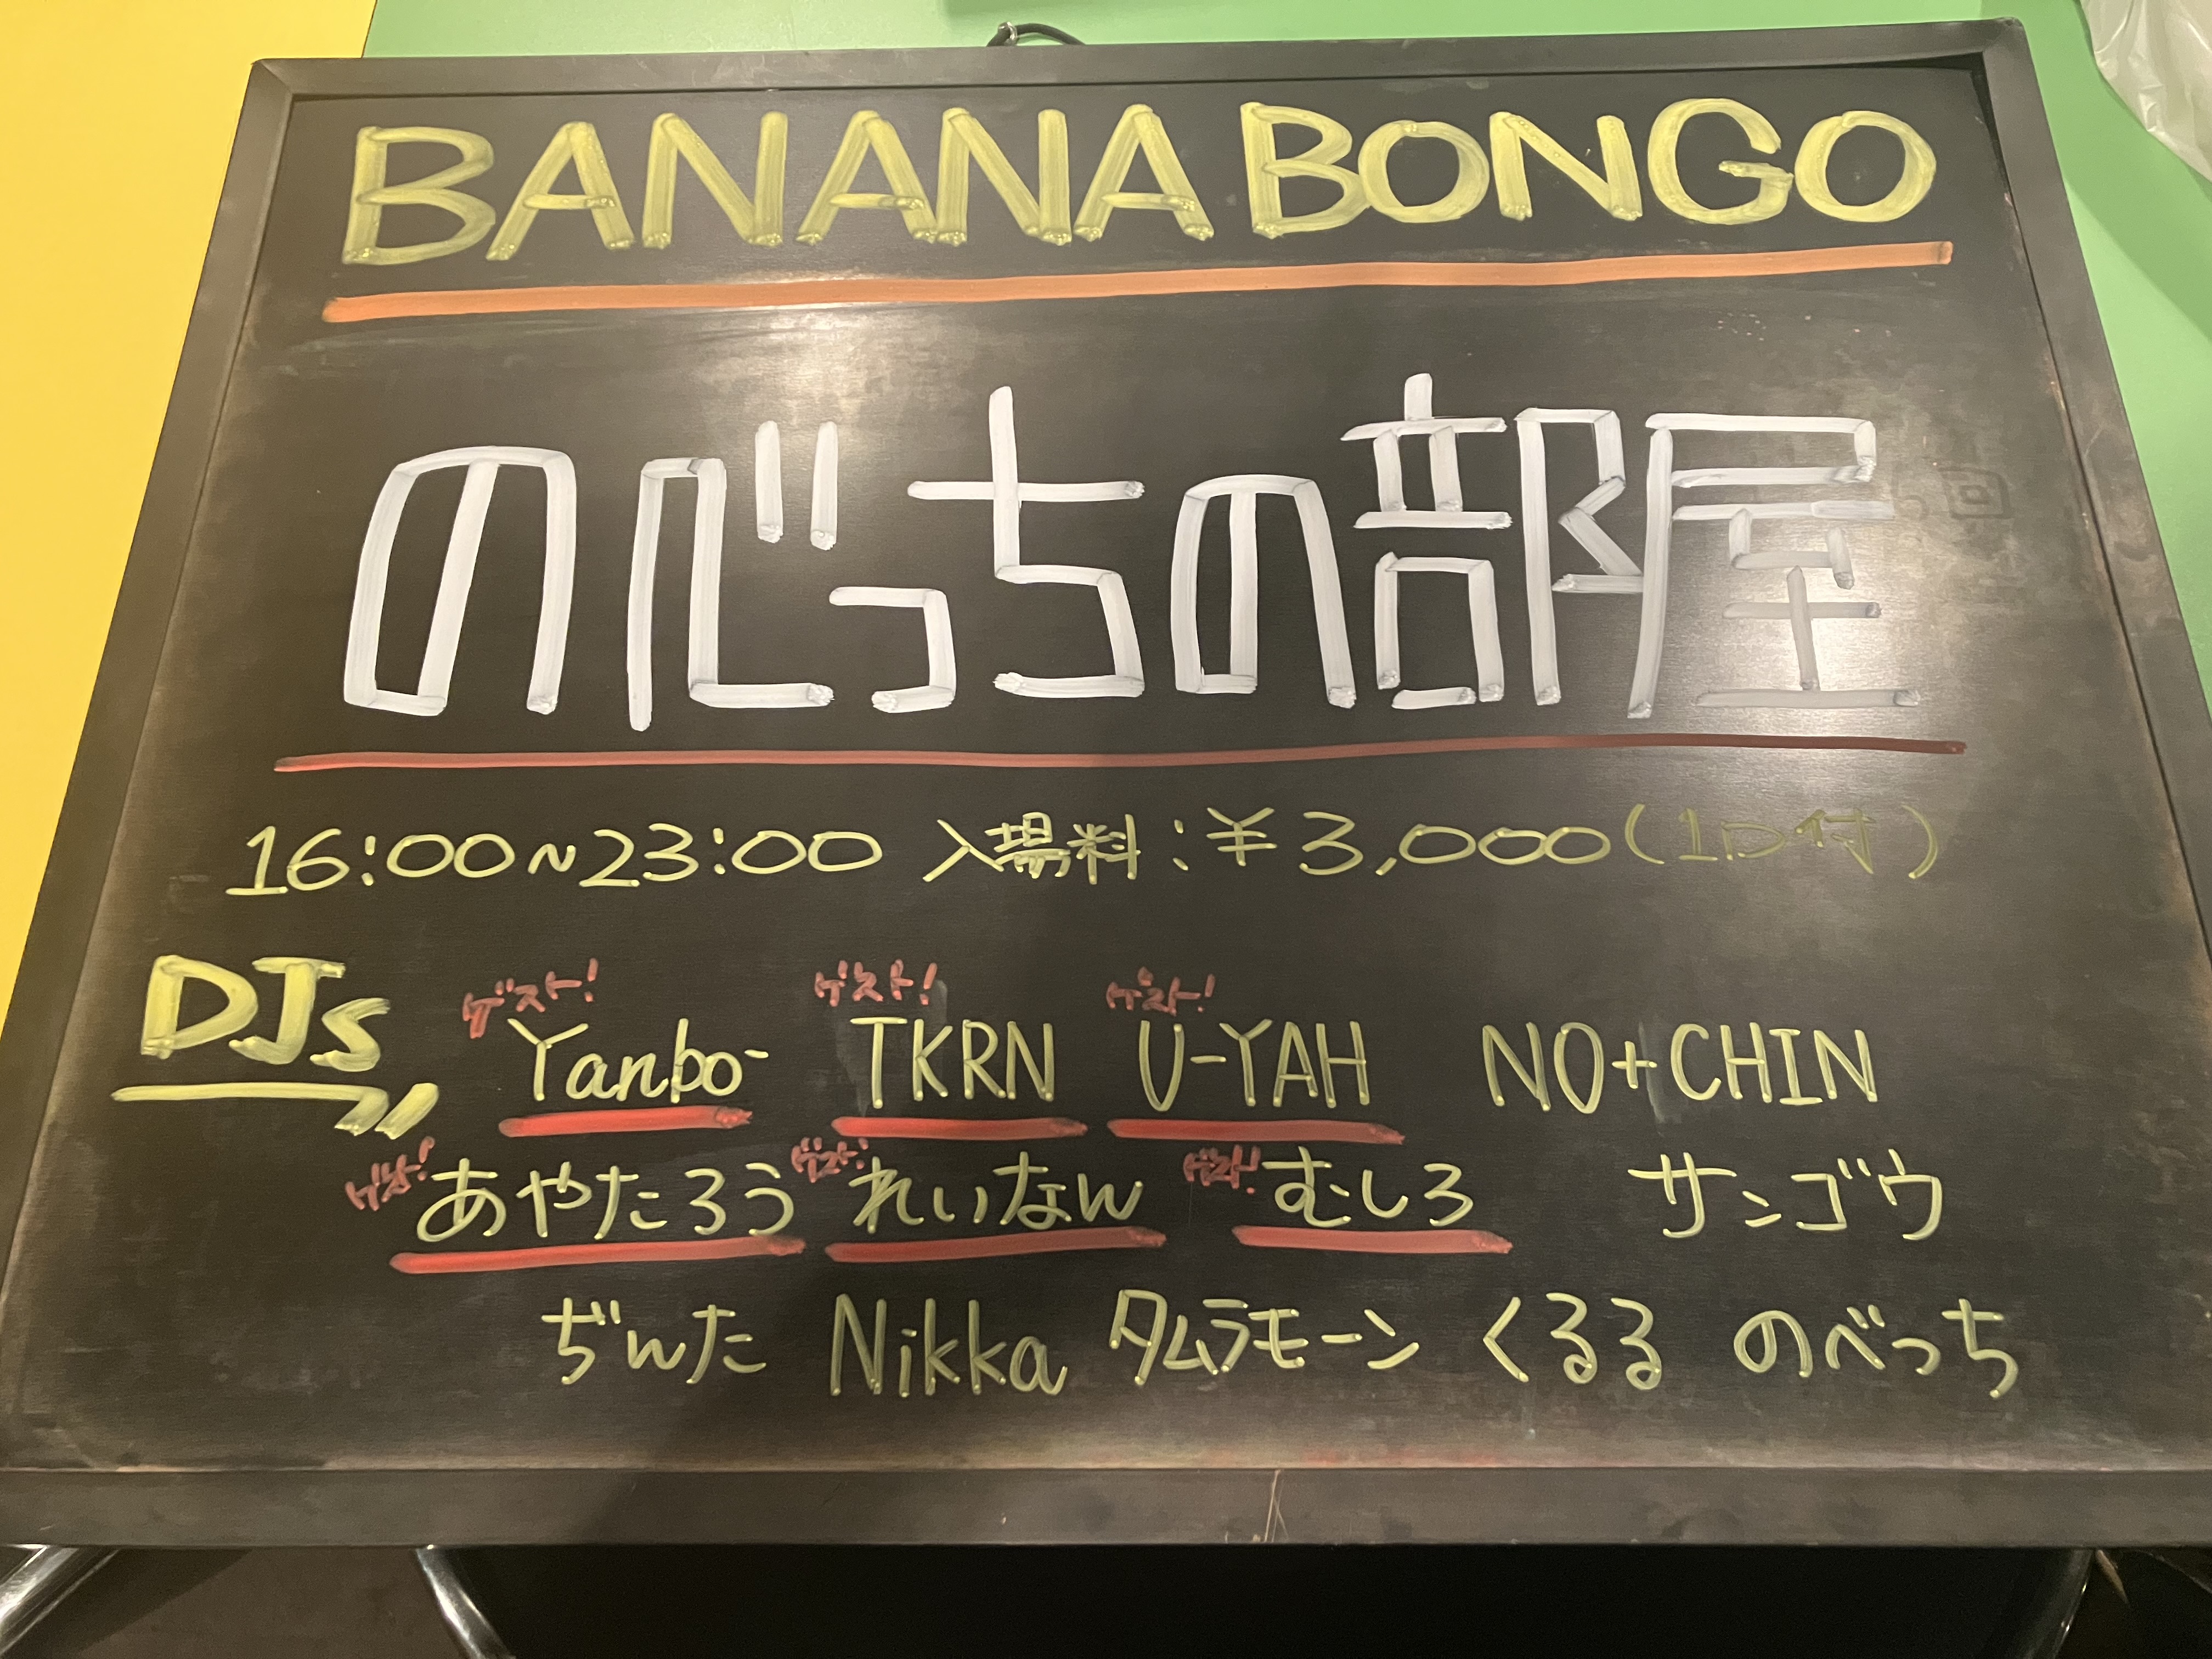 BANANA BONGO
のべっちの部屋
16:00~23:00 入場料:¥3,000(1D付)
DJs
ゲスト! ゲスト! ゲスト!
Yanbo- TKRN U-YAH NO+CHIN
ゲスト! ゲスト! ゲスト!
あやたろう れいなん むしろ サンゴウ
ぢんた Nikka タムラモーン くるる のべっち